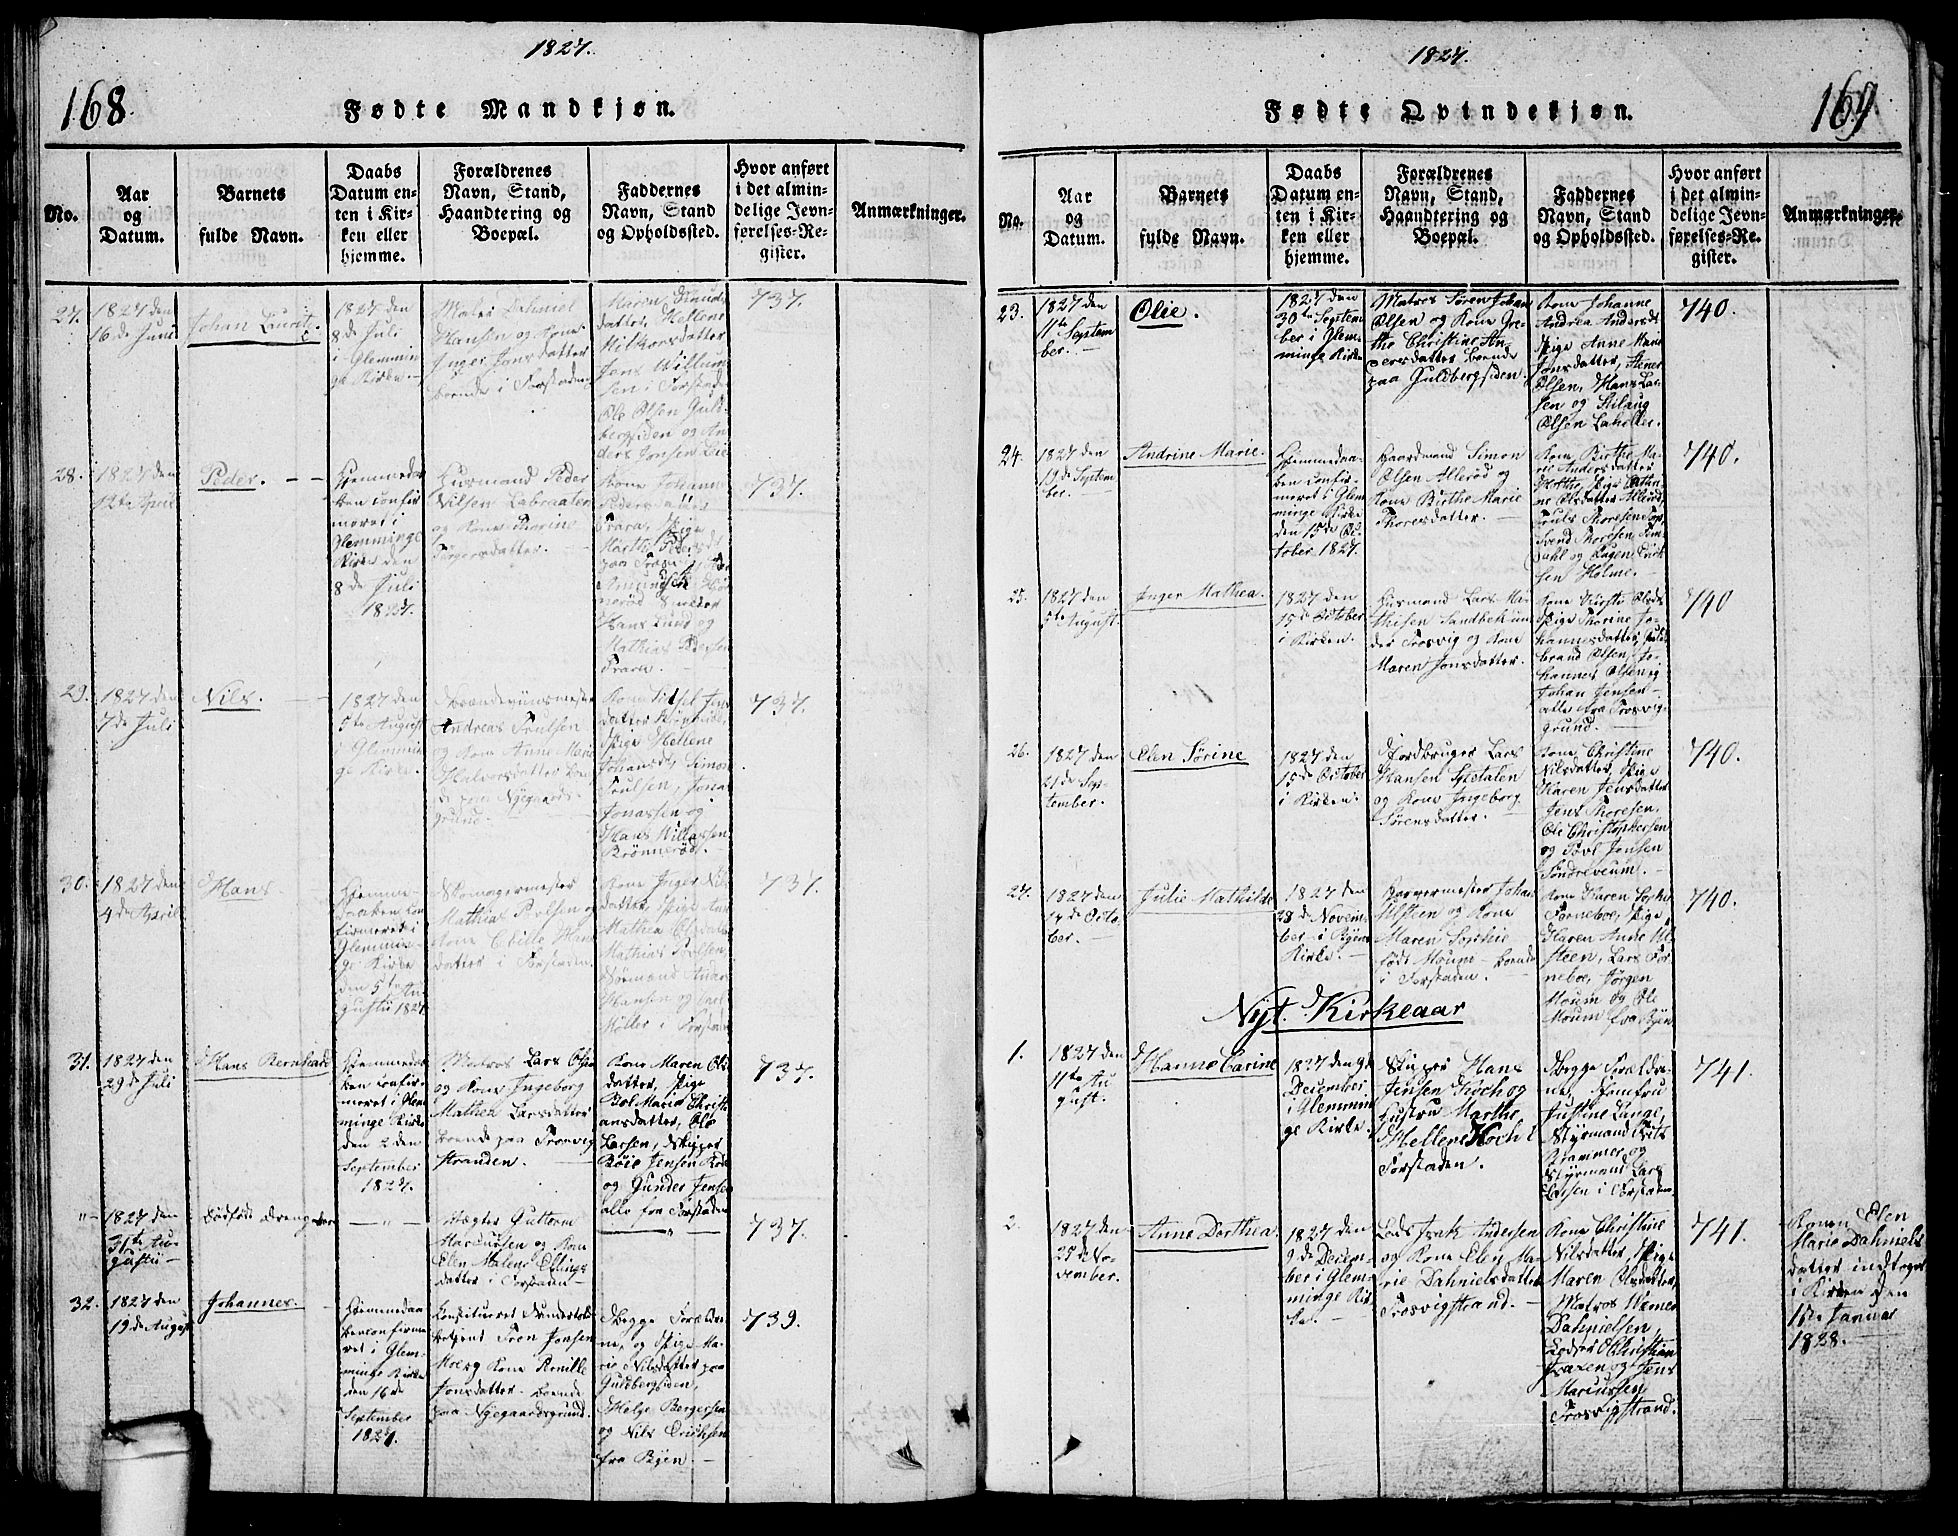 1827.
168
Fødte Mandkjøn.
No.
Aar
og
Datum.
Barnets
fulde Navn.
Daabs
Datum en-
ten i Kir-
ken eller
hjemme.
Forældrenes
Navn, Stand,
Haandtering og
Boepæl.
Faddernes
Navn, Stand
og Opholdssted.
Hvor anført
i det almin-
delige Jevn-
førelses-Re-
gister.
Anmærkninger.
27.
1827 den
16de Juni
Johan Lauritz
1827 den
8de Juli
i Glemmin
ge Kirke.
Dahniel
Hansen og Kone
Inger Jonsdatter
boende i Forstaden
datter, Hellene
Jens Willum
sen i Forstade
Ole Olsen Guld-
bergsiden og An
ders Jonsen
737.
28.
1827 den
12te April
Peder.
Hjemmedø
ben confir
meret i
Glemminge
Kirke den
8de Juli
1827.
Husmand Peder
Nilsen Labraaten
og Kone Thorine
Kone Johanne
Pedersdatter
Trara, Pige
Marthe Peders
Hans Lund og
Mathias Pedersen
Trara.
737.
29.
1827 den
7de Juli
Nils.
1827 den
5te August
i Glemmin
ge Kirke.
Brændeviinsmester
Andreas Poulsen
og Kone Anne Marie
Halvorsdatter boen
de paa Nygaards
grund.
Kone Sidsel Jens
datter
Pige Hellene
Johansd, Simon
Poulsen, Jonas
Jonassen og
Hans Killassen
Brønnerød.
737.
30.
1827 den
4de April
Hans
Hjemme
daaben con
firmeret i
Glemmin-
ge Kirke
den 5te Au
gustii 1827.
Skomagermester
Mathias Povlsen og
Kone Cibille Hans
datter i Forstaden.
Kone Inger Nils
datter, Pige Anne
Mathea Olsdatter
Mathias Povlsen,
Hansen og
Møller i Forstade
737.
31.
1827 den
29de Juli
Hans Bernhard
Hjemmedø
ben confir-
meret i Glem
minge Kirke
den 2den
September
1827.
Matros Lars Olsen
og Kone Ingeborg
Mathea Larsdatter
boende paa Trosvig
stranden.
Kone Maren Ols
datter, Pige
Bol Maria Christi
ansdatter, Ole
Larsen, Skipper
Bøie Jensen
og Gunder Jensen
alle fra Forstaden
737.
"
1827 den
31te Au-
gustii
Dødfødt Drengebarn
"
Guttorm
Marcussen og Kone
Elen Malene Ellings
datter i Forstaden
"
737.
32.
1827 den
19de August
Johannes.
Hjemmedaa
ben confirme
ret i Glem-
minge Kirke
den 16de
September
1827.
Konstitueret
betjent Iven Jonsen
Moe og Kone Pernille
Jonsdatter. boende
paa Nygaardsgrund.
Begge Forældre
ne, og Pige Ma-
rie Nilsdatter paa
Guldbergsiden,
Helge Bergersen
og Nils Erichsen
fra Byen.
739.
1827.
169.
Fødte Qvindekjøn.
No.
Aar
og
Datum.
Barnets
fulde Navn.
Daabs
Datum en-
ten i Kir-
ken eller
hjemme.
Forældrenes
Navn, Stand,
Haandtering og
Boepæl.
Faddernes
Navn, Stand
og Opholdssted.
Hvor anført
i det almin-
delige Jevn-
førelses-Re-
gister.
Anmærkninger.
23.
1827 den
11te Septem
ber.
Olie.
1827 den
30te Septem
ber i Glem-
minge Kirke
Matros Søren Johan
Olsen og Kone Gre-
the Christine An-
dersdatter boende
paa Guldbergsiden
Kone Johanne
Andrea Andersdt
Pige Anne Marie
Jonsdatter,
Olsen, Hans Lar-
sen og
Olsen Lahelle.
740.
24.
1827 den
19de Septem
ber.
Andrine Marie.
Hjemmedaa-
ben confir-
meret i Glem
minge Kirke
den 15de Oc-
tober 1827.
Gaardmand Simon
Olsen Allerød og
Kone Birthe Marie
Thoresdatter.
Kone Birthe Ma-
rie Andersdatter
Holthe, Pige Cathri
ne Olsdatter Allerød,
Truls Thoresen
Svend Thoresen
og Engen Erick
sen Holme.
740.
25.
1827 den
5te August.
Inger Mathea.
1827 den
15de October
i Kirken.
Husmand Lars Ma-
thisen Sandbek un-
der Trosvig og Kone
Maren Jonsdatter.
Kone Kirsti Olsdt
Pige Thorine Jo-
hannesdatter,
brand Olsen, Jo-
hannes Olsen og
Johan Jensen
alle fra Trosvig-
grund.
740
26.
1827 den
21de Sep-
tember.
Elen Sørine
1827 den
15de October
i Kirken.
Jordbruger Lars
Hansen Spetalen
og Kone Ingeborg
Sørensdatter.
Kone Christine
Nilsdatter, Pige
Karen Jensdatter
Jens Thoresen,
Ole Christophersen
og Povl Jensen
Søndreveum.
740.
27.
1827 den
14de Octo-
ber.
Julie Mathilde
1827 den
28de Novem-
ber i Byens
Kirke.
Johan
Ulsteen og Kone
Maren Sophie
født Moum boende
i Forstaden.
Kone Karen Sophie
Torneboe, Pige
Karen Anne Ul
steen, Lars Tor-
neboe, Jørgen
Moum og Ole
Moum fra Byen
740.
Nyt. Kirkeaar
1.
1827 den
11te Au
gust.
Hanne Carine
1827 den 9de
December
i Glemmin
ge Kirke.
Skipper Hans
Jensen Koch og
Hustru Marthe
Hellene Koch i
Forstaden.
Begge Forældre-
ne, Jomfru
Justine Lange,
Styrmand
Brammer og
Styrmand Lars
Larsen i Forstaden
741.
2.
1827 den
25de No-
vember.
Anne Dorthea.
1827 den
9de Decem-
ber i Glem
minge Kir
ke.
Lods Isak Andersen
og Kone Elen Ma-
rie Dahnielsdatter
Trosvigstrand.
Kone Christine
Nilsdatter, Pige
Maren Olsdatter,
Matros Werner
Dahnielsen,
Lodser Christian
Isaksen og Jens
Marcussen
Trosvigstrand.
741.
Konen Elen
Marie Dahniels
datter indtaget
i Kirken den
13de Januar
1828.